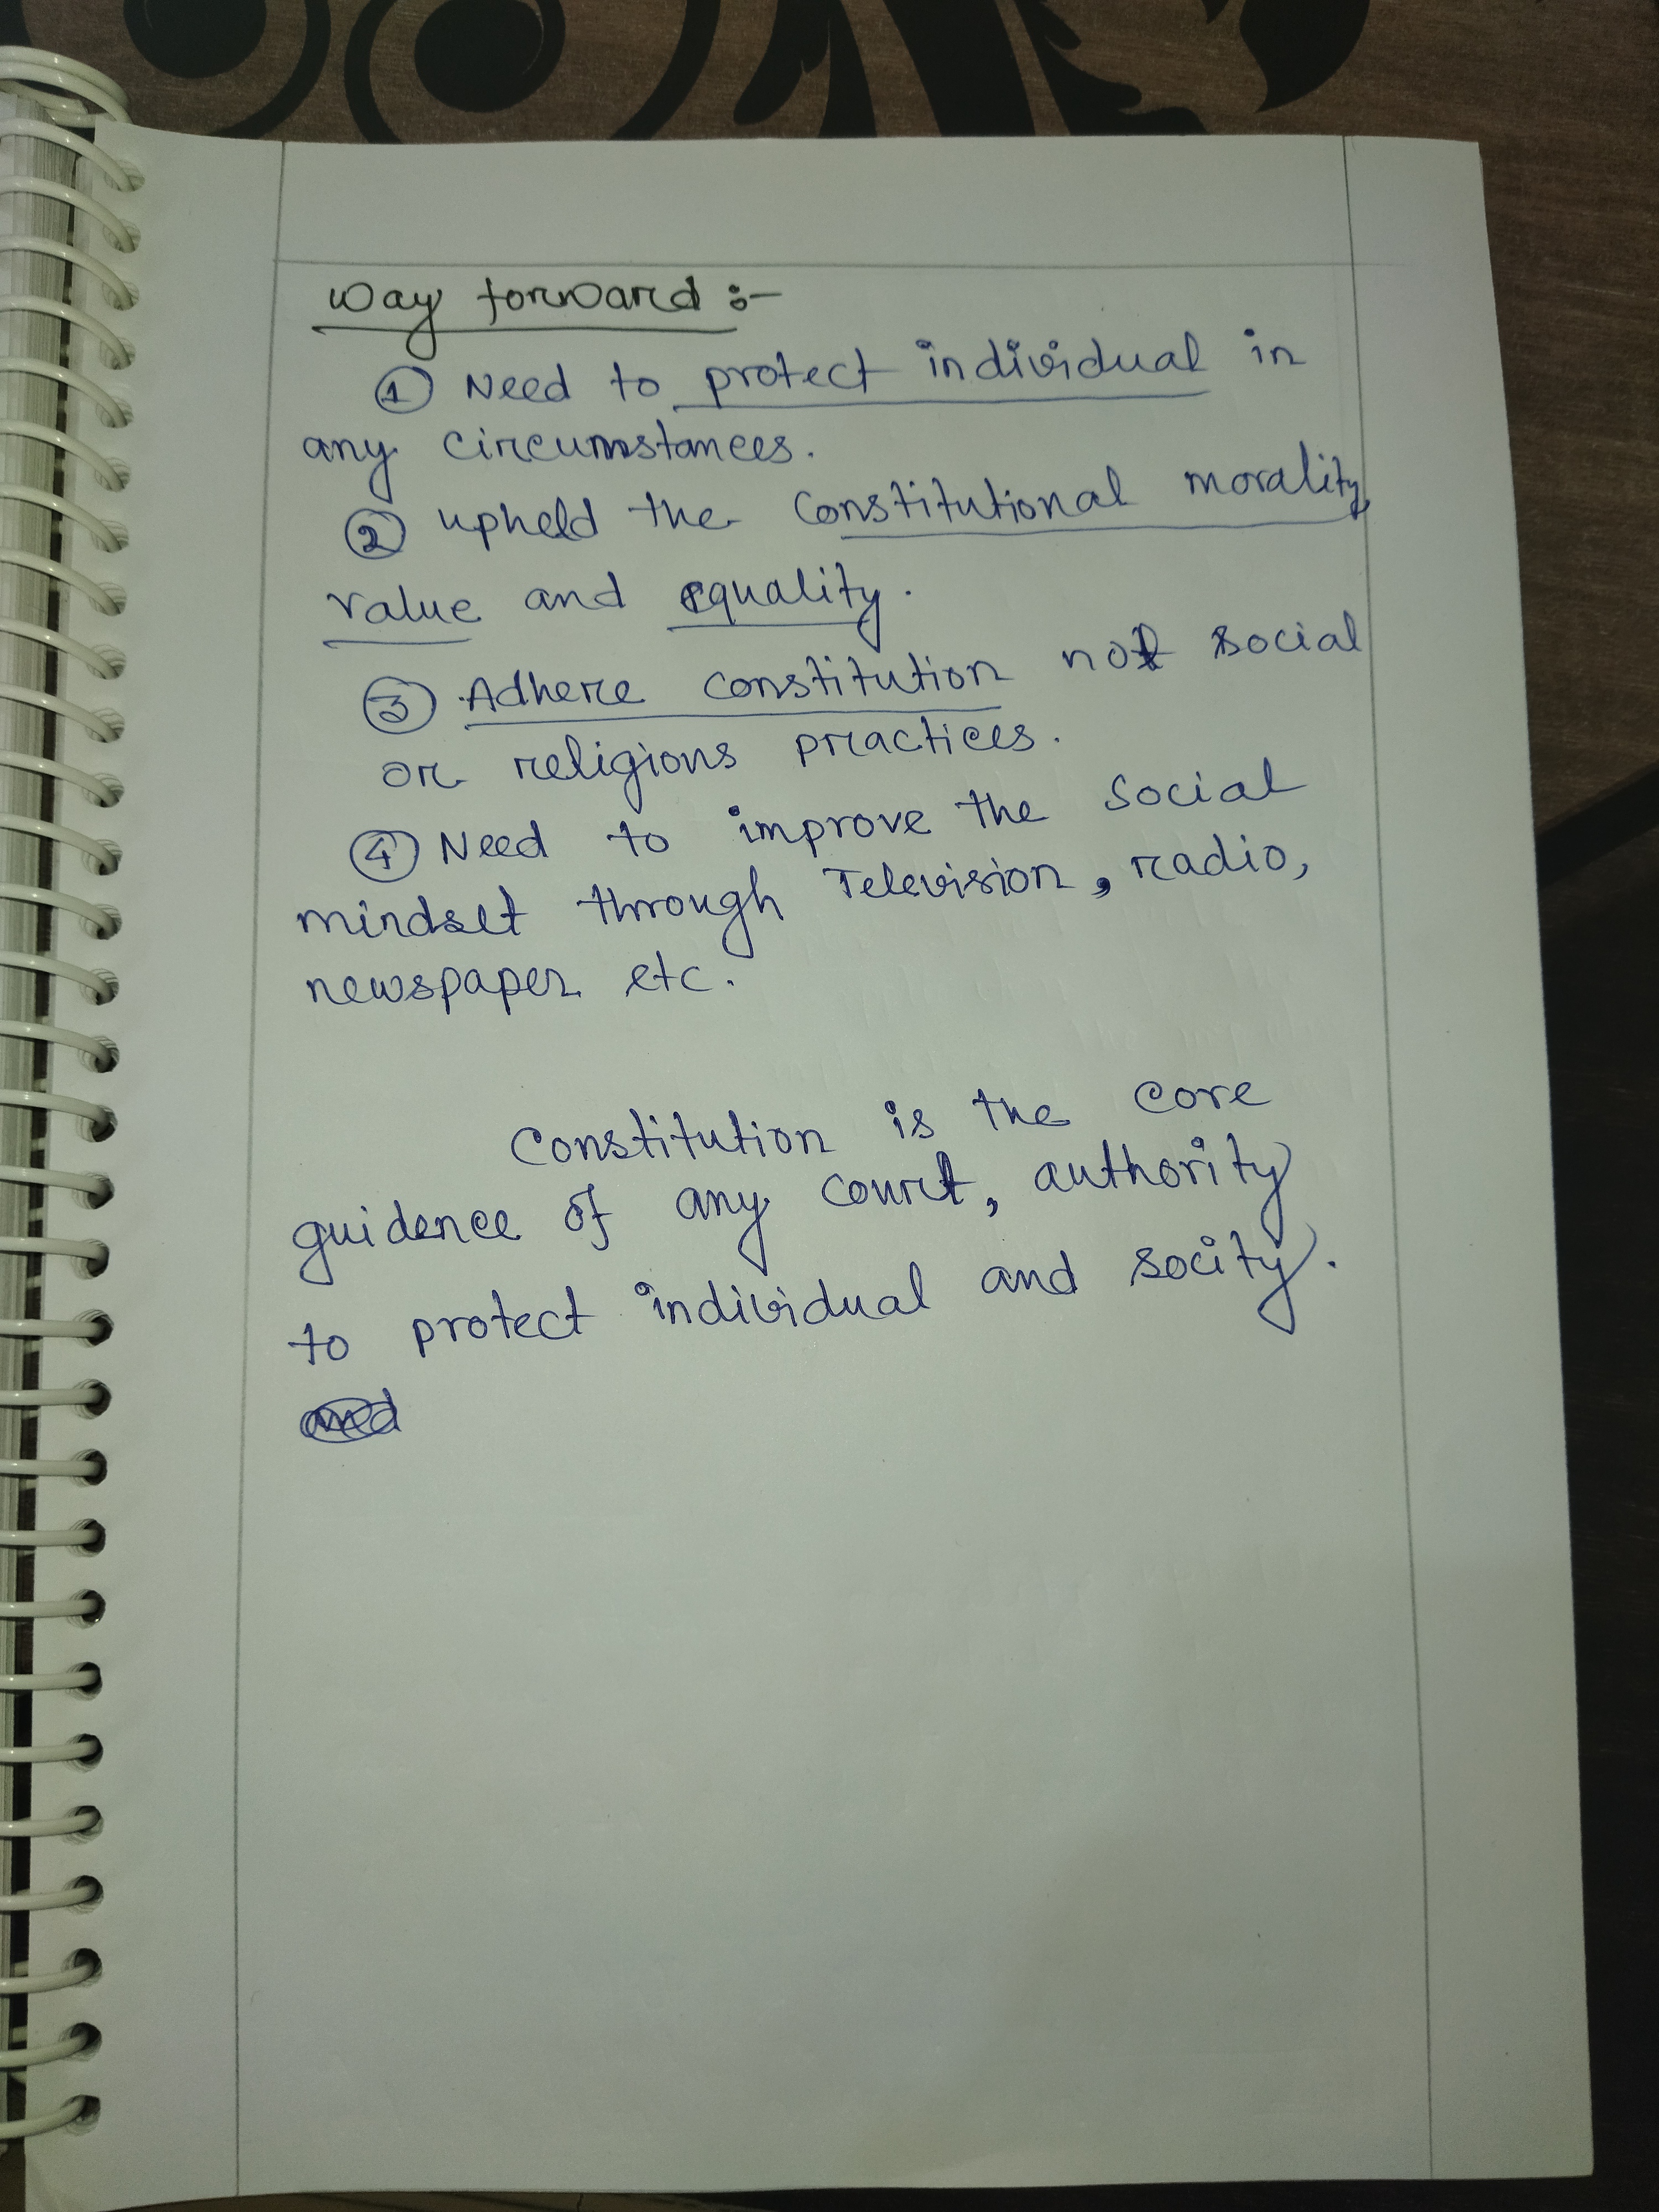 Way forward :-
① Need to protect individual in
any circumstances.
② upheld the Constitutional morality,
value and equality.
③ Adhere constitution not social
or religions practices.
④ Need to improve the social
mindset through Television, radio,
newspaper etc.
Constitution is the core
guidence of any court, authority
to protect individual and socity.